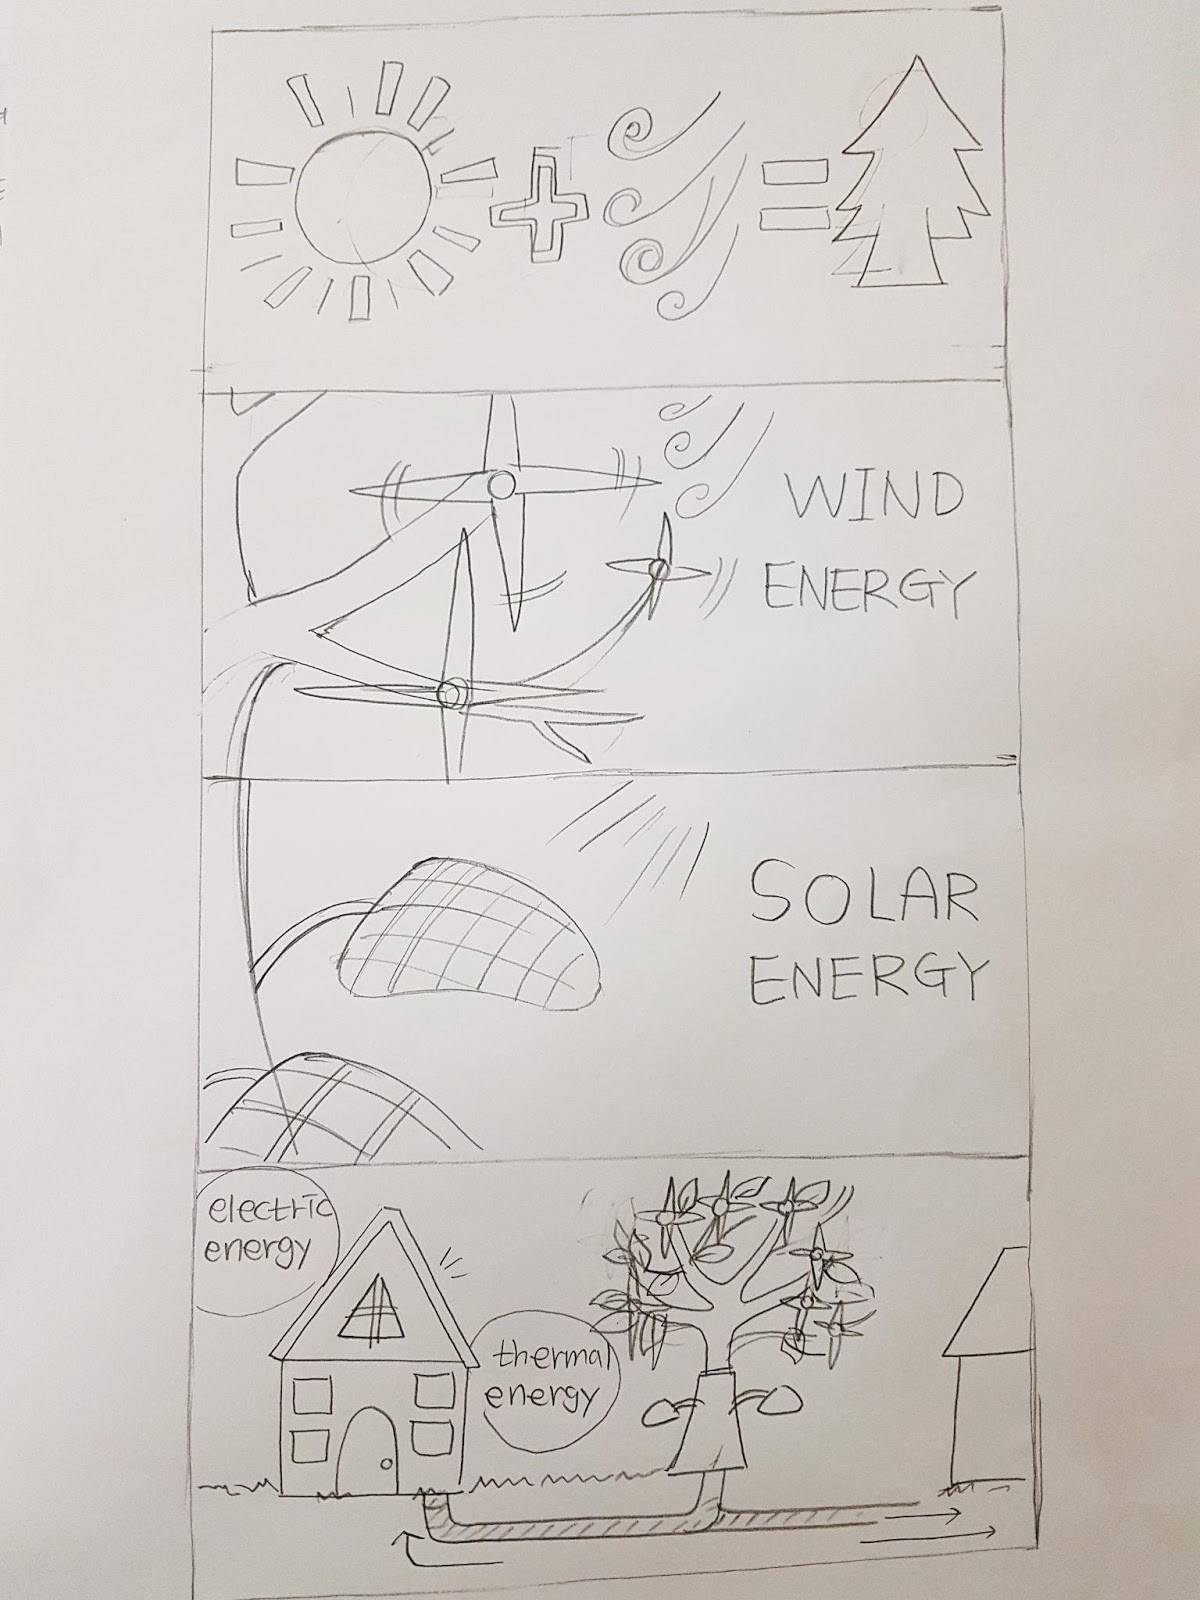 WIND
ENERGY
SOLAR
ENERGY
electric
energy
thermal
energy